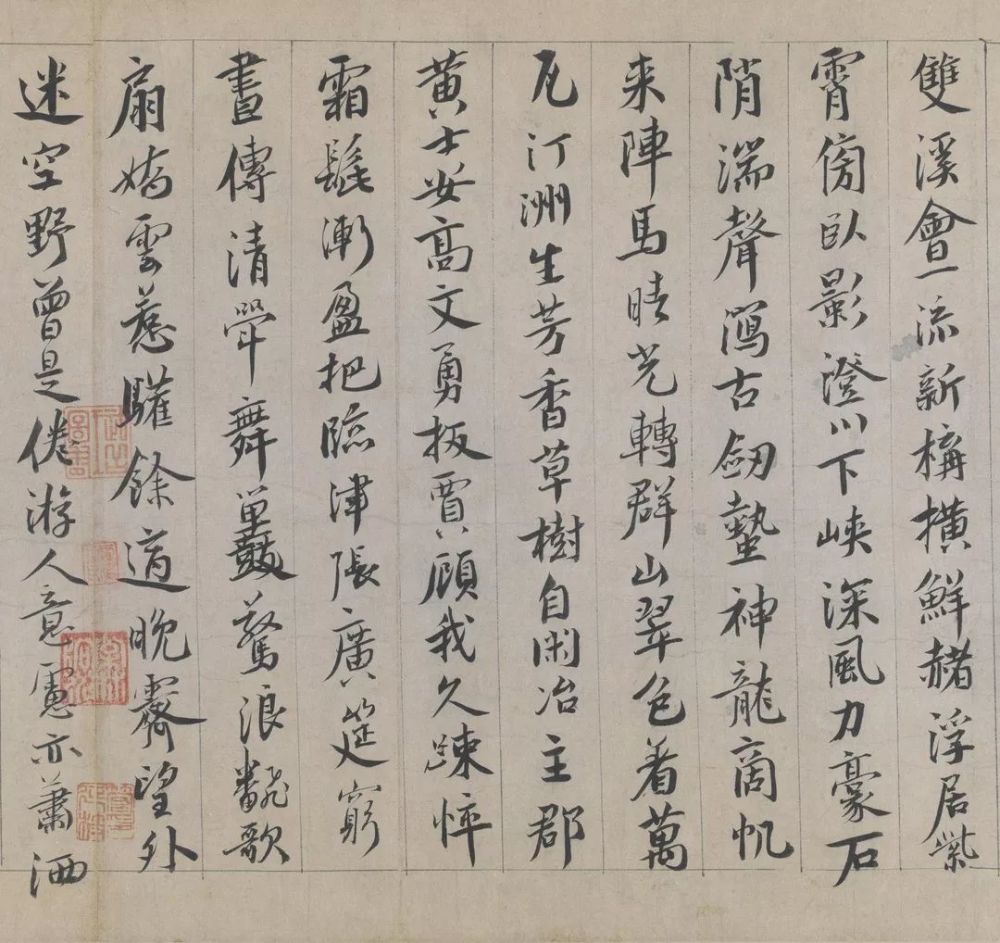 雙溪會一流新構橫鮮赭浮居紫
霄傍臥影澄川下峽深風力豪石
陗湍聲瀉古劒蟄神龍商帆
来陣馬晴光轉群山翠色着萬
瓦汀洲生芳香草樹自閑冶主郡
黄士安高文勇扳賈顧我久踈悴
霜髭漸盈把臨津張廣筵窮
晝傳清斝舞鼉驚浪飜歌
扇嬌雲惹驩餘適晚霽望外
迷空野曾是倦游人意慮亦蕭洒